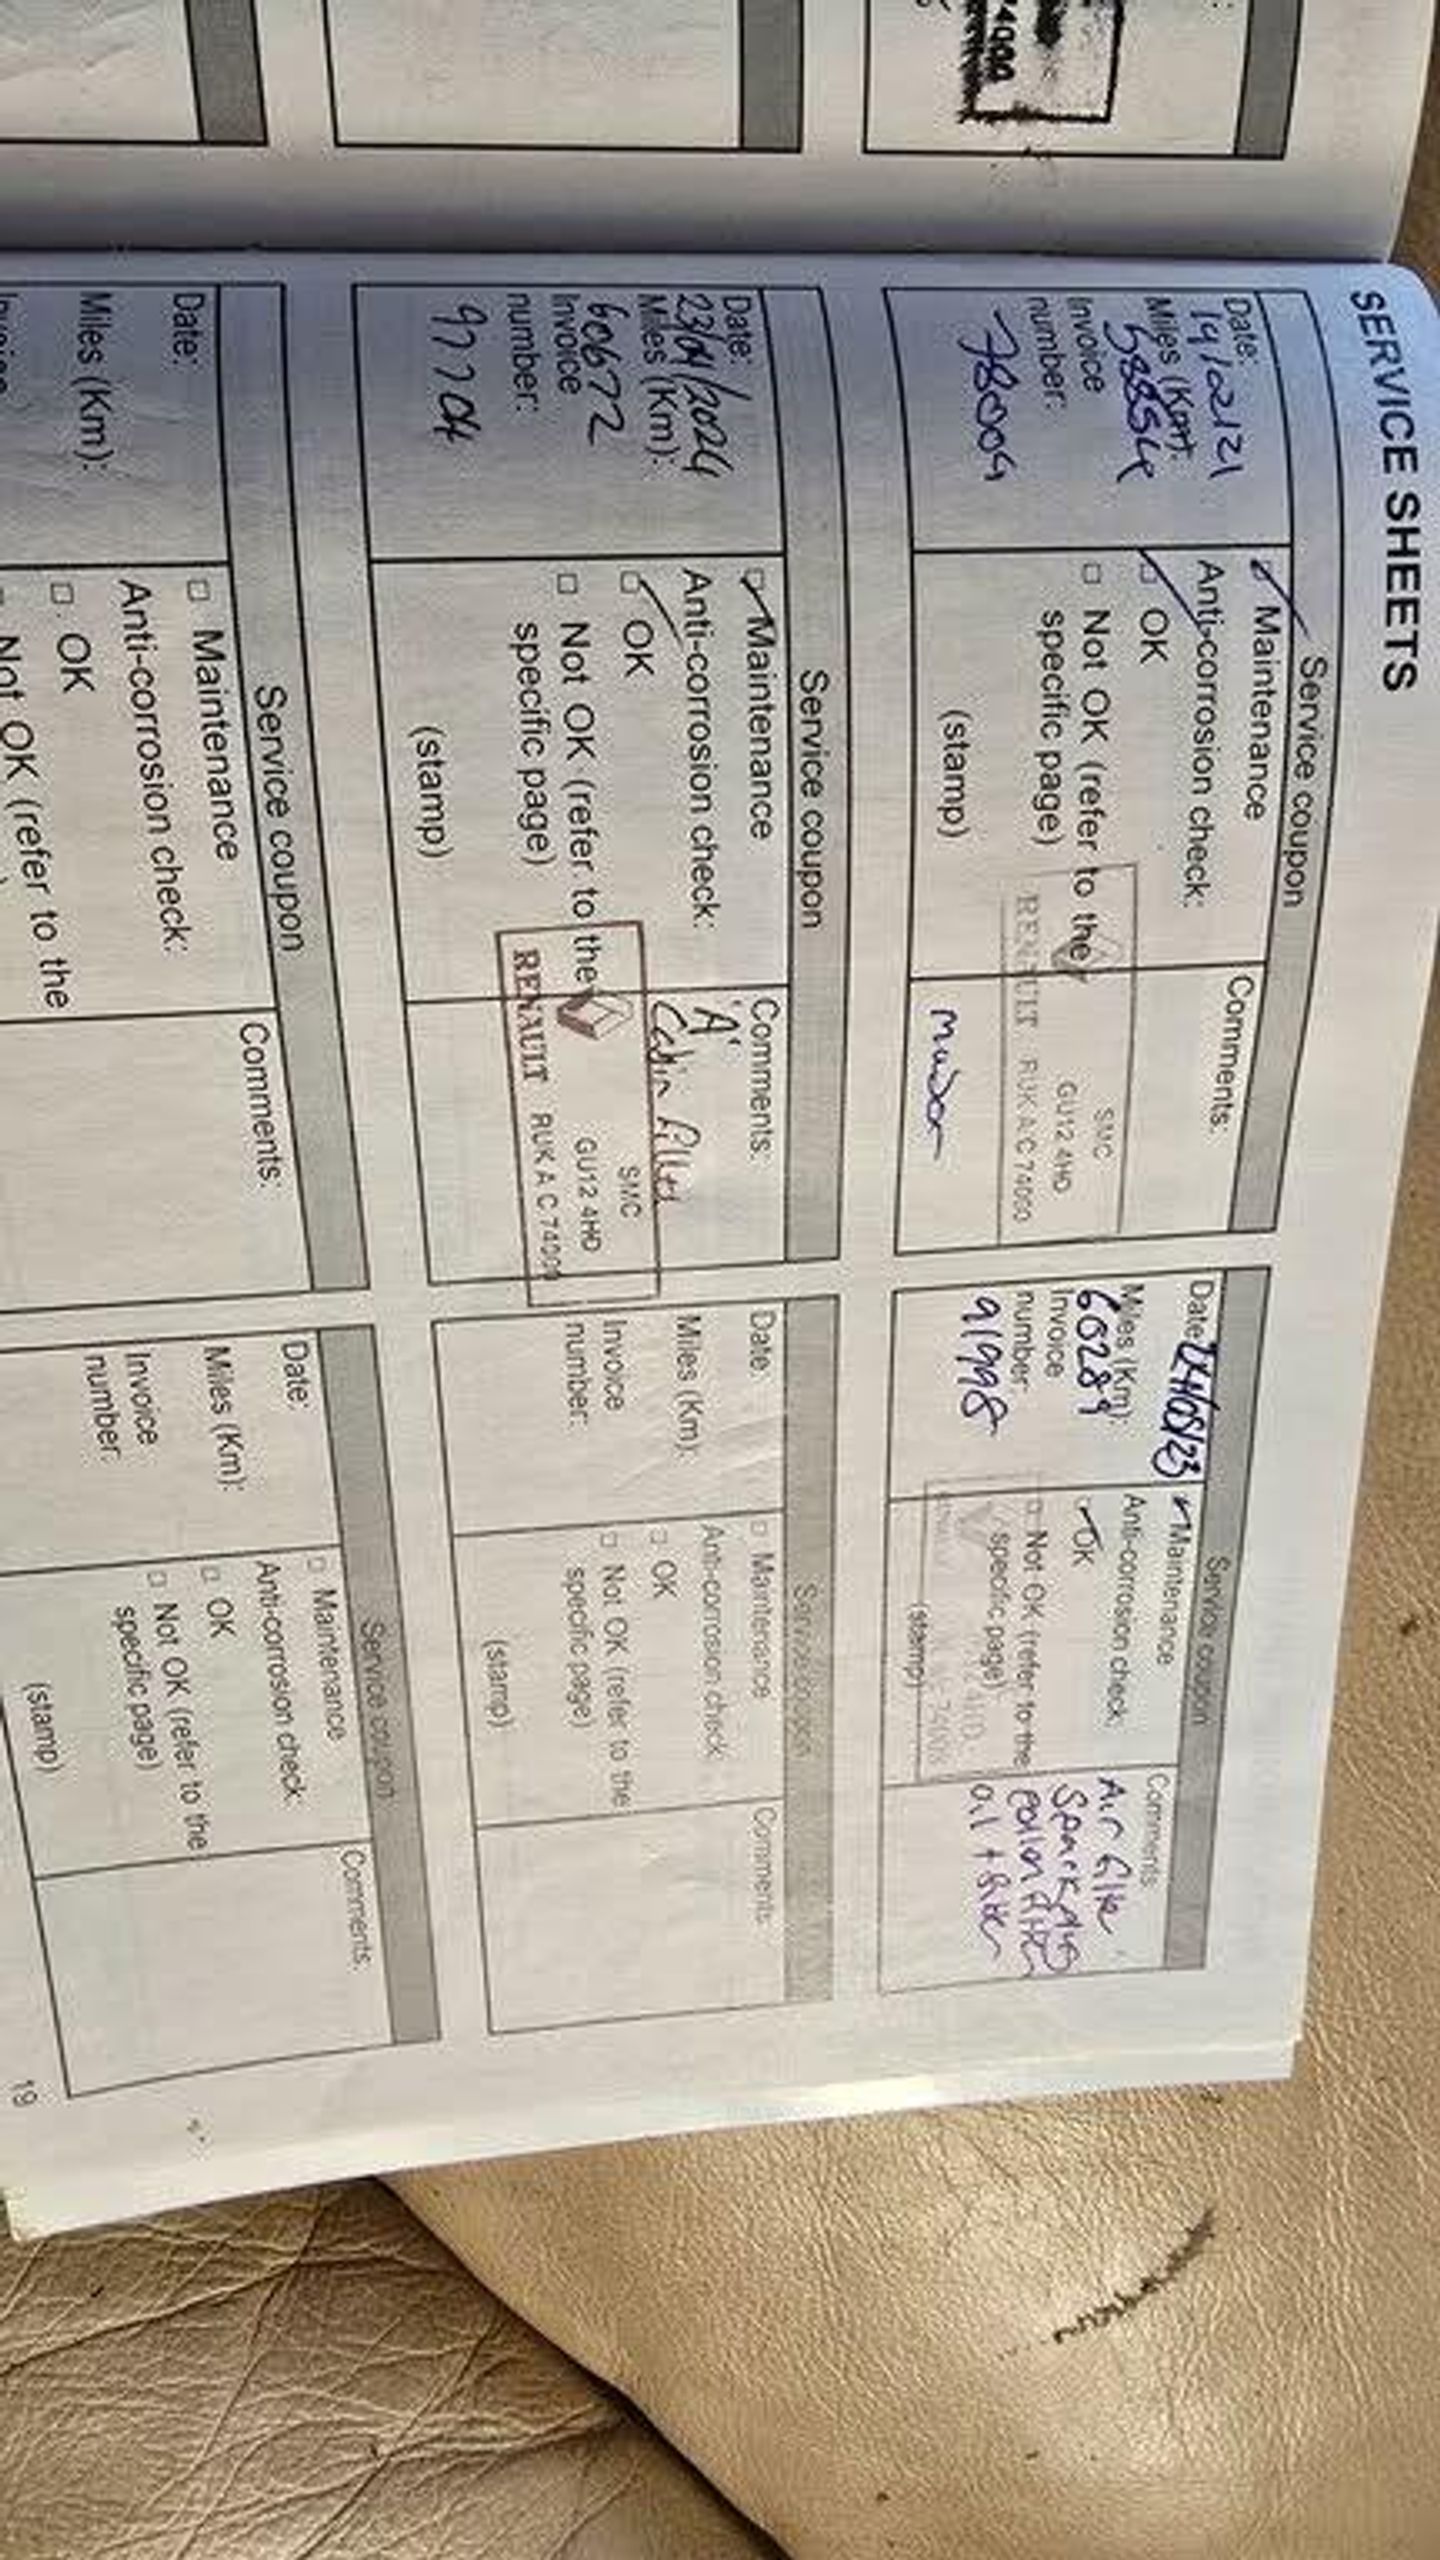 4000
SERVICE SHEETS
Service coupon
Date:
14/12/21
Miles (Km):
Invoice
number:
78009
Maintenance
Anti-corrosion check:
OK
Not OK (refer to the
specific page)
(stamp)
Comments:
SMC
GU12 4HD
RENAULT RUK A C 74000
Service coupon
Date:
Miles (Km):
60289
Invoice
number:
91998
Maintenance
Anti-corrosion check:
OK
Not OK (refer to the
specific page)
(stamp)
Comments:
Air filter
Spark plugs
pollen filter
oil + filter
Service coupon
Date:
23/04/2024
Miles (Km):
60672
Invoice
number:
97704
Maintenance
Anti-corrosion check:
OK
Not OK (refer to the
specific page)
(stamp)
Comments:
'A'
Cabin filter
SMC
GU12 4HD
RENAULT RUK A C 74000
Service coupon
Date:
Miles (Km):
Invoice
number:
Maintenance
Anti-corrosion check:
OK
Not OK (refer to the
specific page)
(stamp)
Comments:
Service coupon
Date:
Miles (Km):
Invoice
Maintenance
Anti-corrosion check:
OK
Not OK (refer to the
Comments:
Service coupon
Date:
Miles (Km):
Invoice
number:
Maintenance
Anti-corrosion check:
OK
Not OK (refer to the
specific page)
(stamp)
Comments:
19